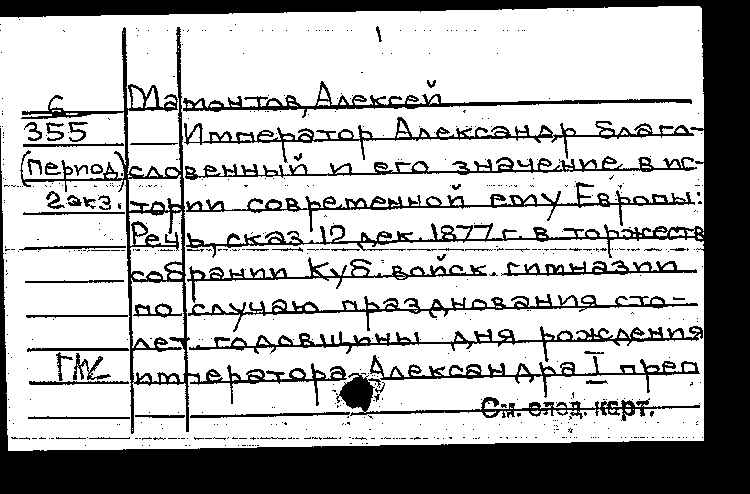 1
С Мамонтов, Алексей
355 Император Александр Благо-
(период.) словенный и его значение в ис-
2 экз. тории современной ему Европы:
Речь, сказ. 12 дек. 1877 г. в торжеств
собрании Куб. войск. гимназии
по случаю празднования сто-
лет. годовщины дня рождения
императора Александра I преп
См. след. карт.